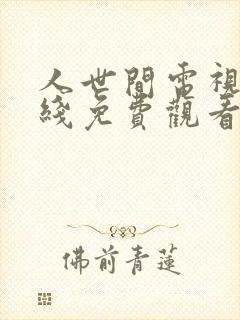 人世間電視
綫免費觀看
佛前青蓮